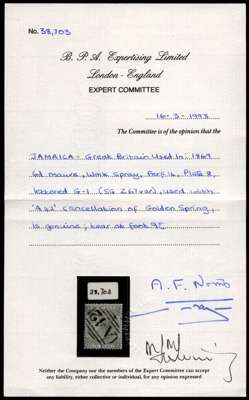 No. 38,703
B. P. A. Expertising Limited
London - England
EXPERT COMMITTEE
16-3-1998
The Committee is of the opinion that the
JAMAICA - Great Britain Used In: 1869
6d mauve, Wmk Spray, Perf.14, Plate 8,
lettered G-I (SG Z67var), used with
'A42' cancellation of Golden Spring,
is genuine; tear at foot
38,703
A42
Neither the Company nor the members of the Expert Committee can accept
any liability, either collective or individual, for any opinion expressed